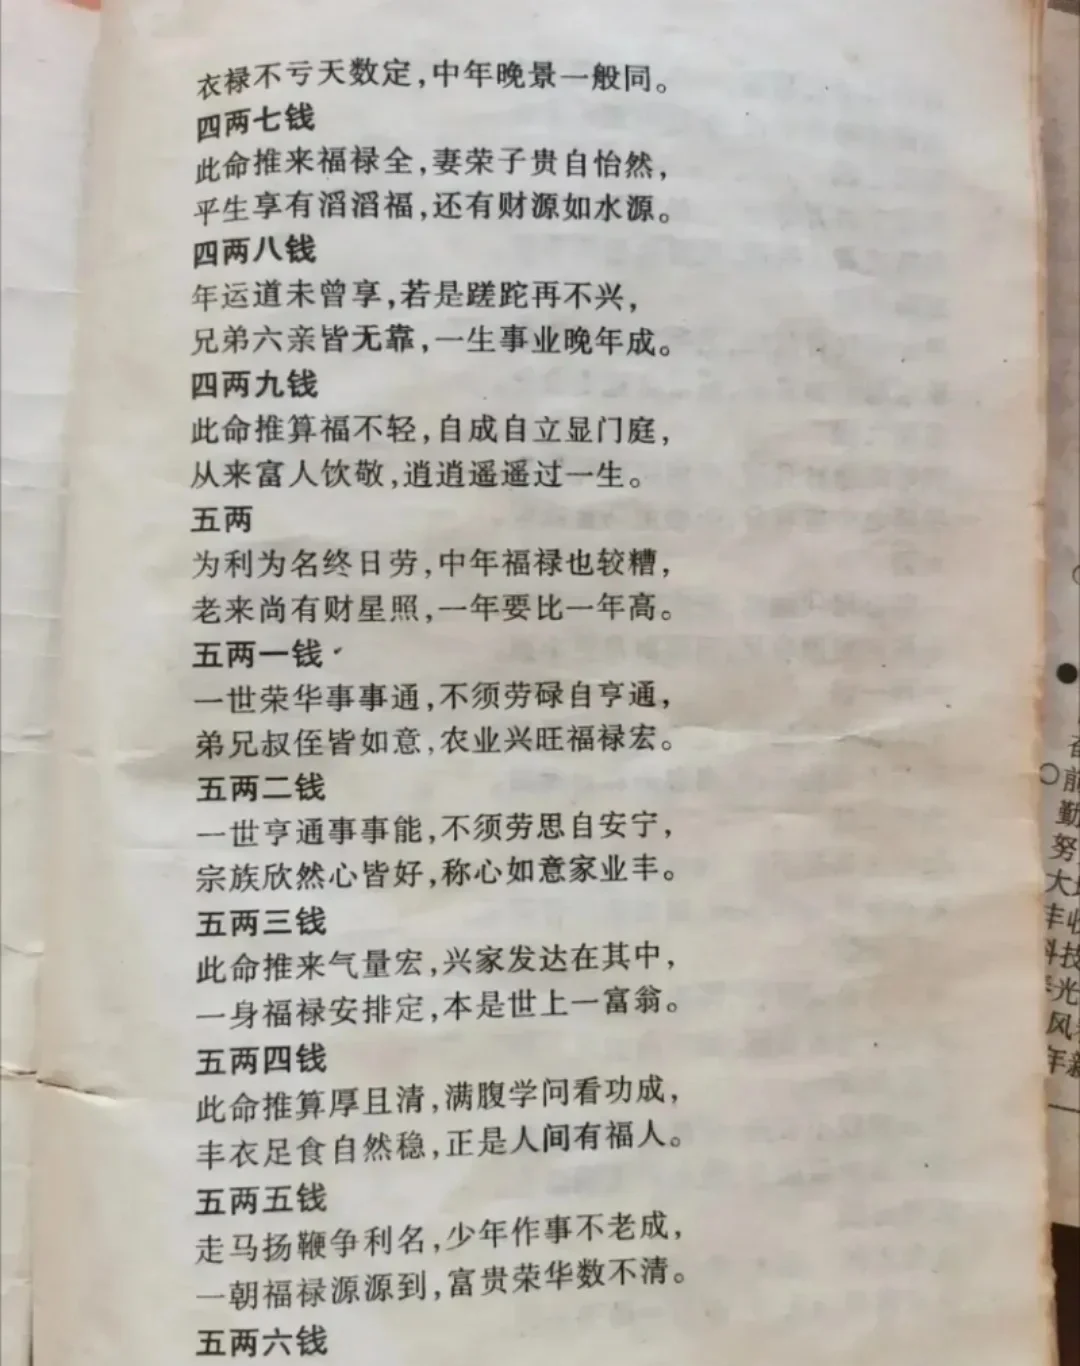 衣禄不亏天数定,中年晚景一般同。
四两七钱
此命推来福禄全,妻荣子贵自怡然,
平生享有滔滔福,还有财源如水源。
四两八钱
年运道未曾享,若是蹉跎再不兴,
兄弟六亲皆无靠,一生事业晚年成。
四两九钱
此命推算福不轻,自成自立显门庭,
从来富人饮敬,逍逍遥遥过一生。
五两
为利为名终日劳,中年福禄也较糟,
老来尚有财星照,一年要比一年高。
五两一钱
一世荣华事事通,不须劳碌自亨通,
弟兄叔侄皆如意,农业兴旺福禄宏。
五两二钱
一世亨通事事能,不须劳思自安宁,
宗族欣然心皆好,称心如意家业丰。
五两三钱
此命推来气量宏,兴家发达在其中,
一身福禄安排定,本是世上一富翁。
五两四钱
此命推算厚且清,满腹学问看功成,
丰衣足食自然稳,正是人间有福人。
五两五钱
走马扬鞭争利名,少年作事不老成,
一朝福禄源源到,富贵荣华数不清。
五两六钱
前
勤
努
大
丰收
科技
光
风
年新